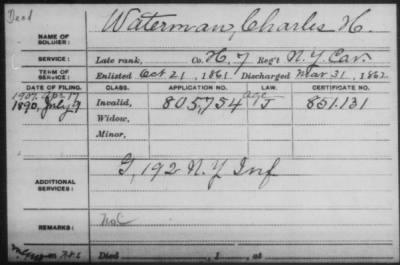 Dead
NAME OF SOLDIER: Waterman, Charles H.
SERVICE: Late rank, Co. H, 7 Reg't N.Y. Cav.
TERM OF SERVICE: Enlisted Oct 21, 1861 Discharged Mar 31, 1862
DATE OF FILING. CLASS. APPLICATION NO. LAW. CERTIFICATE NO.
1907, Apr 17 age
1890, July 9 Invalid, 805,754 J 851.131
Widow,
Minor,
ADDITIONAL SERVICES: G, 192 N.Y. Inf
REMARKS:
Died , 1 , at